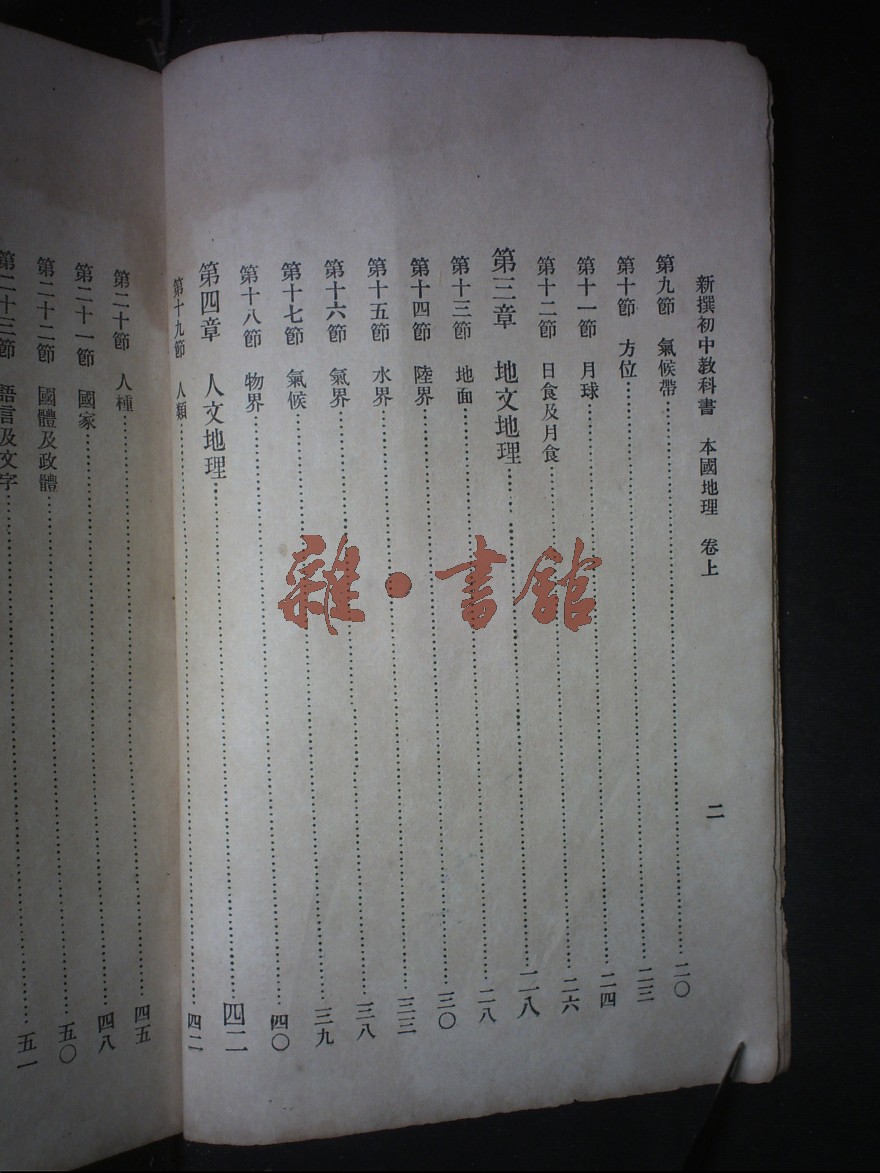 新撰初中教科書 本國地理 卷上 二
第九節 氣候帶 二〇
第十節 方位 二三
第十一節 月球 二四
第十二節 日食及月食 二六
第三章 地文地理 二八
第十三節 地面 二八
第十四節 陸界 三〇
第十五節 水界 三三
第十六節 氣界 三八
第十七節 氣候 三九
第十八節 物界 四〇
第四章 人文地理 四二
第十九節 人類 四二
第二十節 人種 四五
第二十一節 國家 四八
第二十二節 國體及政體 五〇
第二十三節 語言及文字 五一
雜·書館